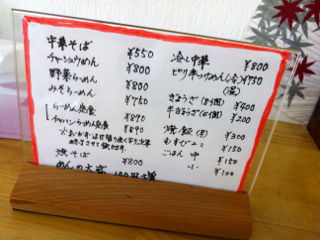 中華そば ¥550
チャーシューめん ¥800
野菜らーめん ¥800
みそらーめん ¥750
らーめん定食 ¥870
チャーハンらーめん定食 ¥890
焼そば ¥800
めんの大盛
冷し中華 ¥800
ピリ辛つけめん(冷) ¥750
(温)
ぎょうざ(5個) ¥400
半ぎょうざ ¥200
¥300
むすび ¥150
ごはん 中 ¥150
小 ¥100